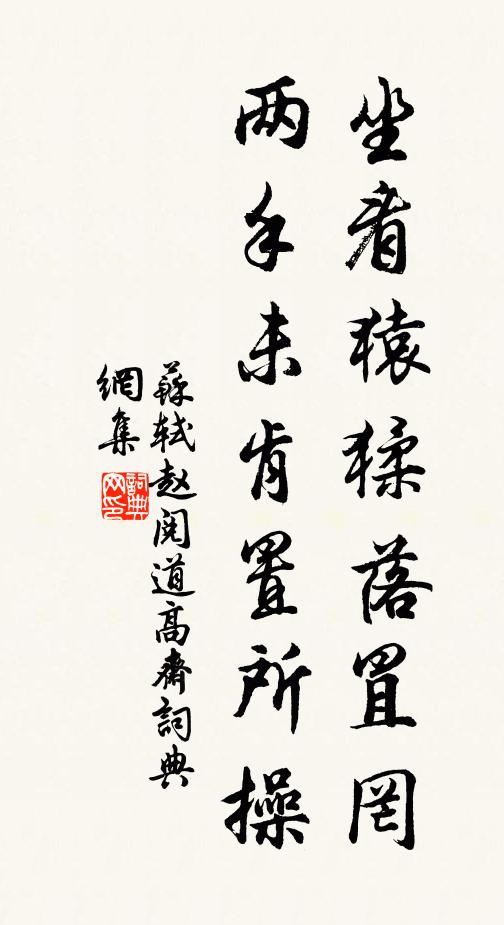 坐看猿猱落罝罔
两手未肯置所操
蘇轼赵阅道高齋詞典
網集
詞典
网印